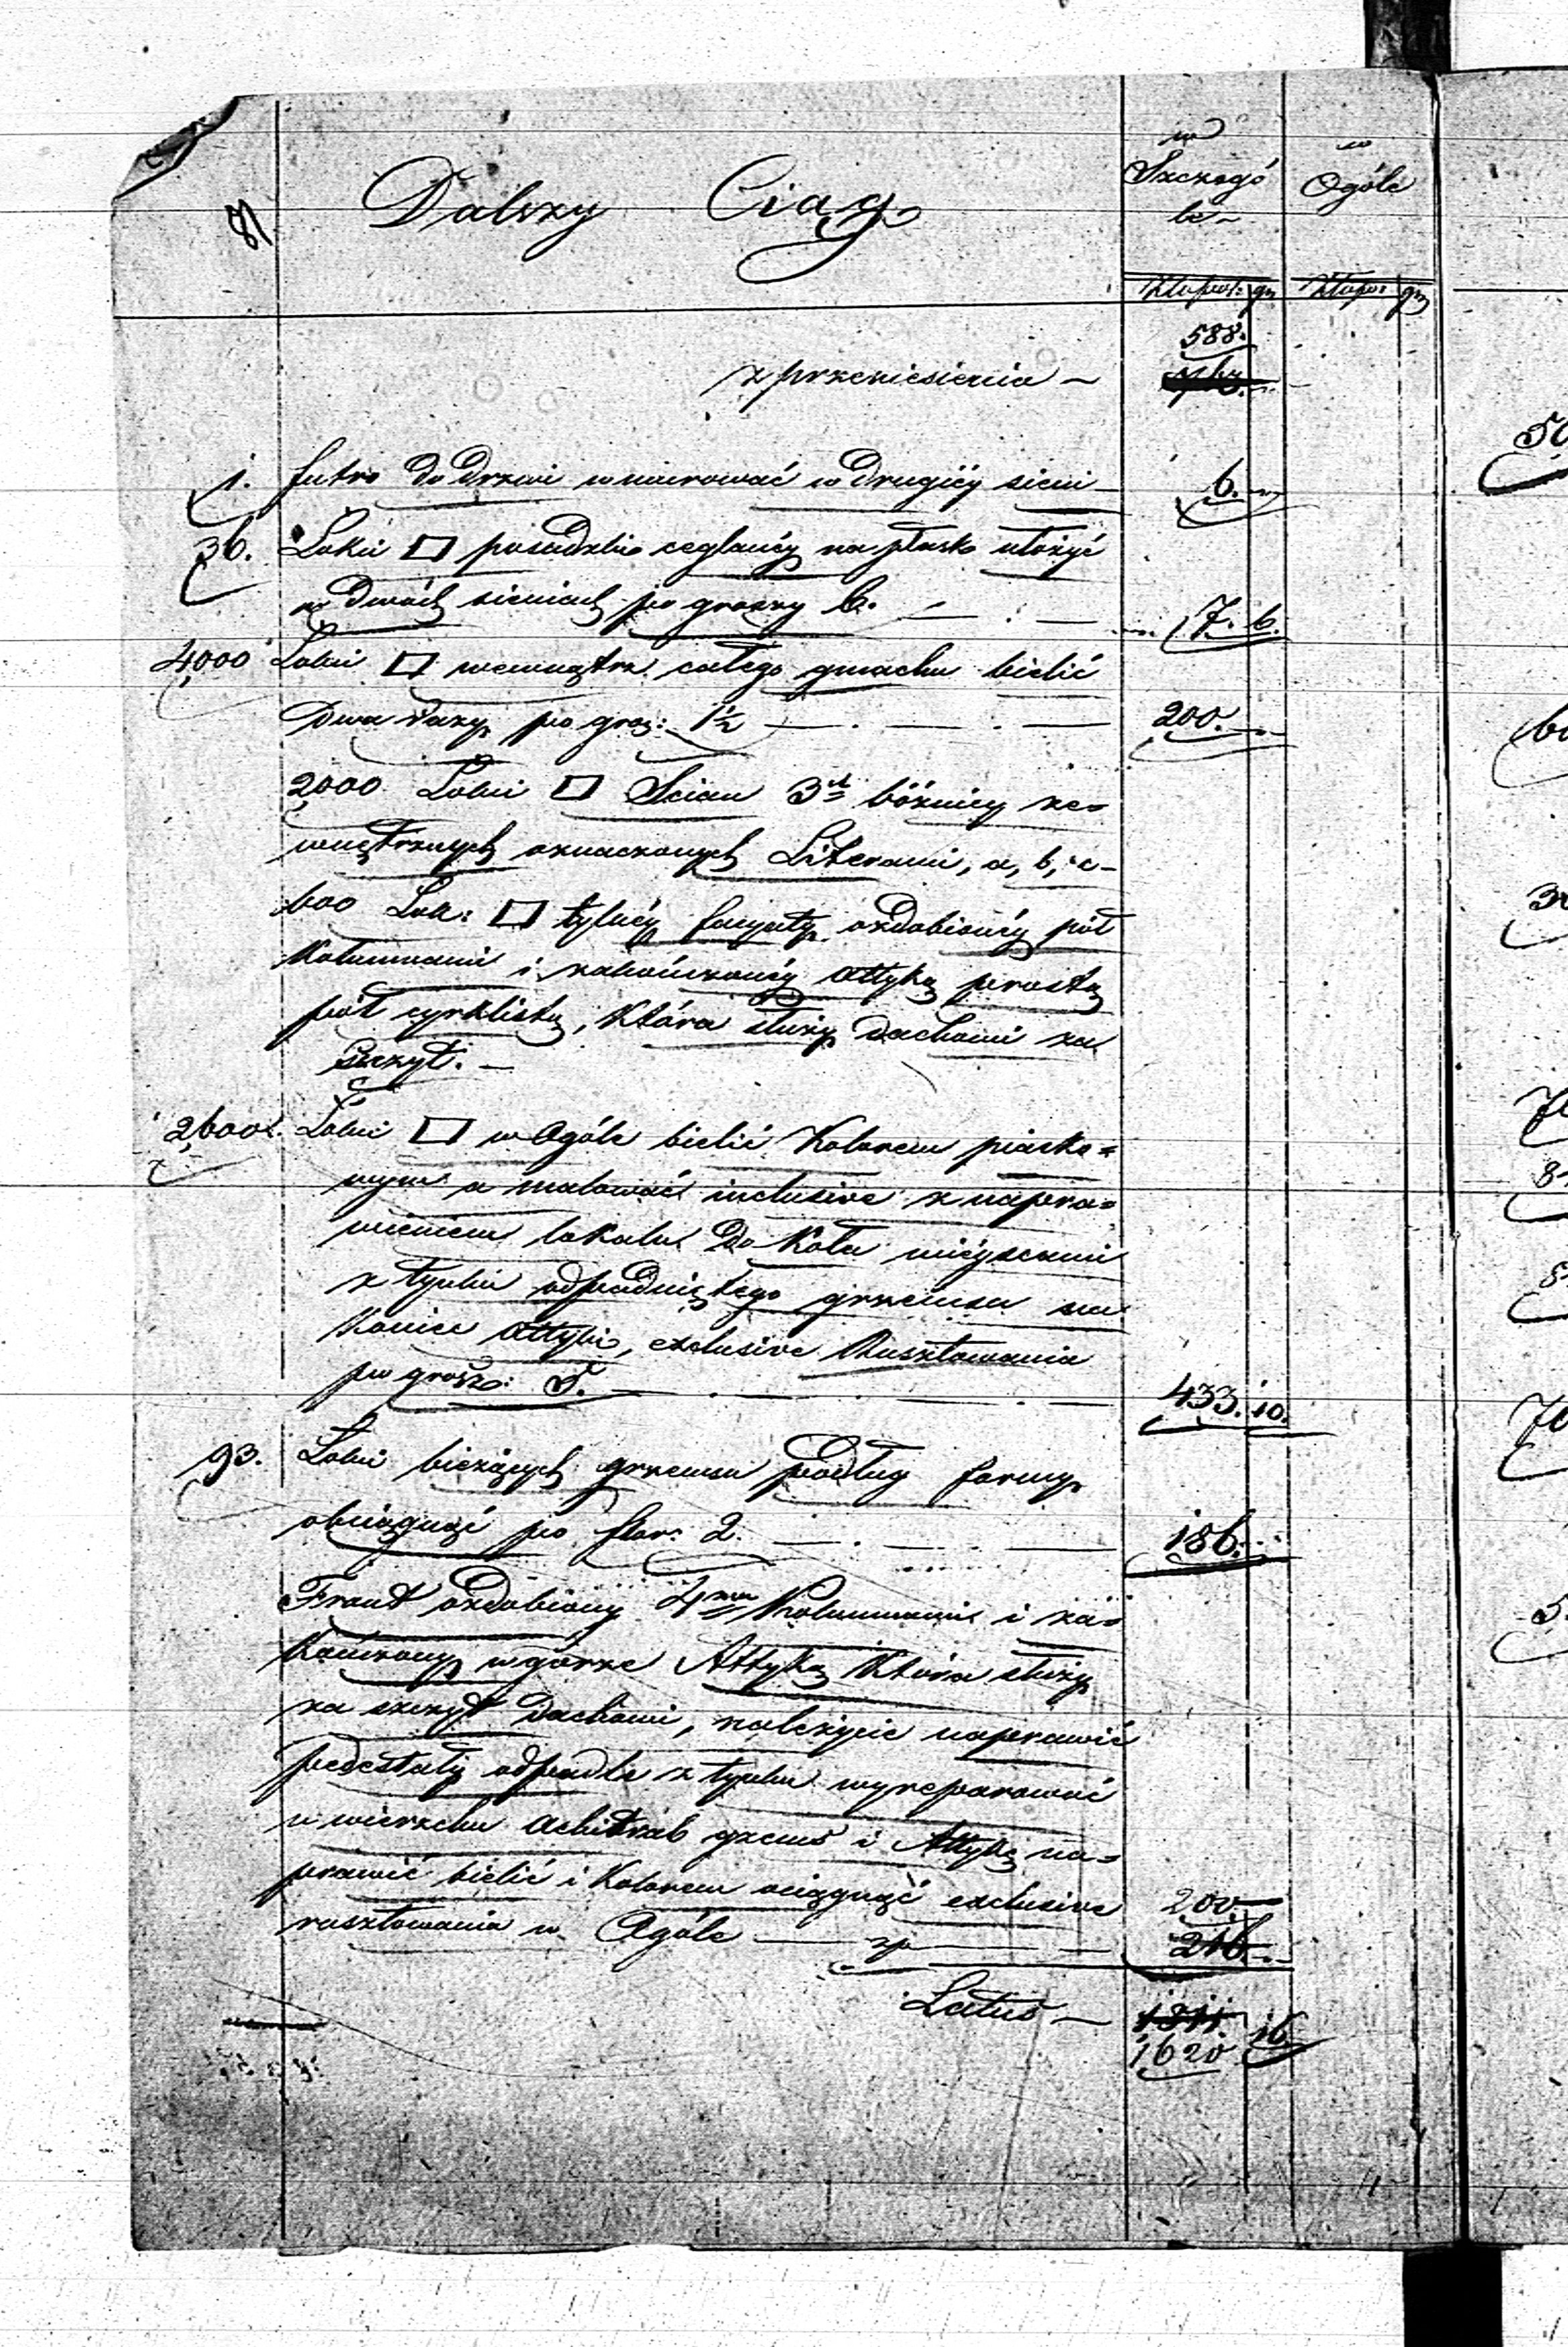 w
Szczegó
le
w
Ogóle
Dalszy Ciąg
Złłpol: gr
Złłpol: gr
588.
z przeniesienia —
1. futro do drzwi wmurować w drugiéy sieni 6. —
36. Łokci □ posadzki ceglanéy na płask ułożyć
w dwóch sieniach po groszy 6. — . — 7. 6.
4,000 Łokci □ wewnątrz całego gmachu bielić
Dwa razy po gro: 1½ — . — . — 200. —
2,000 Łokci □ Scian 3ch bóżnicy ze=
wnętrznych oznaczonych Literami, a, b, c —
600 Łok: □ tylnéy facyaty ozdobionéy pół
Kolumnami i zakończonéy attyką prostą
pół cyrklistą, która służy dachowi za
Szczyt. —
2,600. Łokci □ w Ogóle bielić Kolorem piasko=
wym a malować inclusive z napra=
wieniem do Koła miéyscami
z tynku odpadniętego grzemsu na
Koniec attyki, exclusive Rusztowania
po grosz: 5. — . — . — 433. 10.
93. Łokci bieżących grzemsu podług formy
obciągnąć po flor: 2. — . — . — 186. —
Front ozdobiony 4ma Kolumnami i za=
kończony w górze Attyką która służy
za szczyt Dachowi, należycie naprawić
pedestały odpadłe z tynku wyreparować
w wierzchu Achitrab gzems i Attykę na=
prawić bielić i Kolorem ociągnąć exclusive 200. —
rusztowania w Ogóle — zp — 216. —
Latus — 1811 16
1620